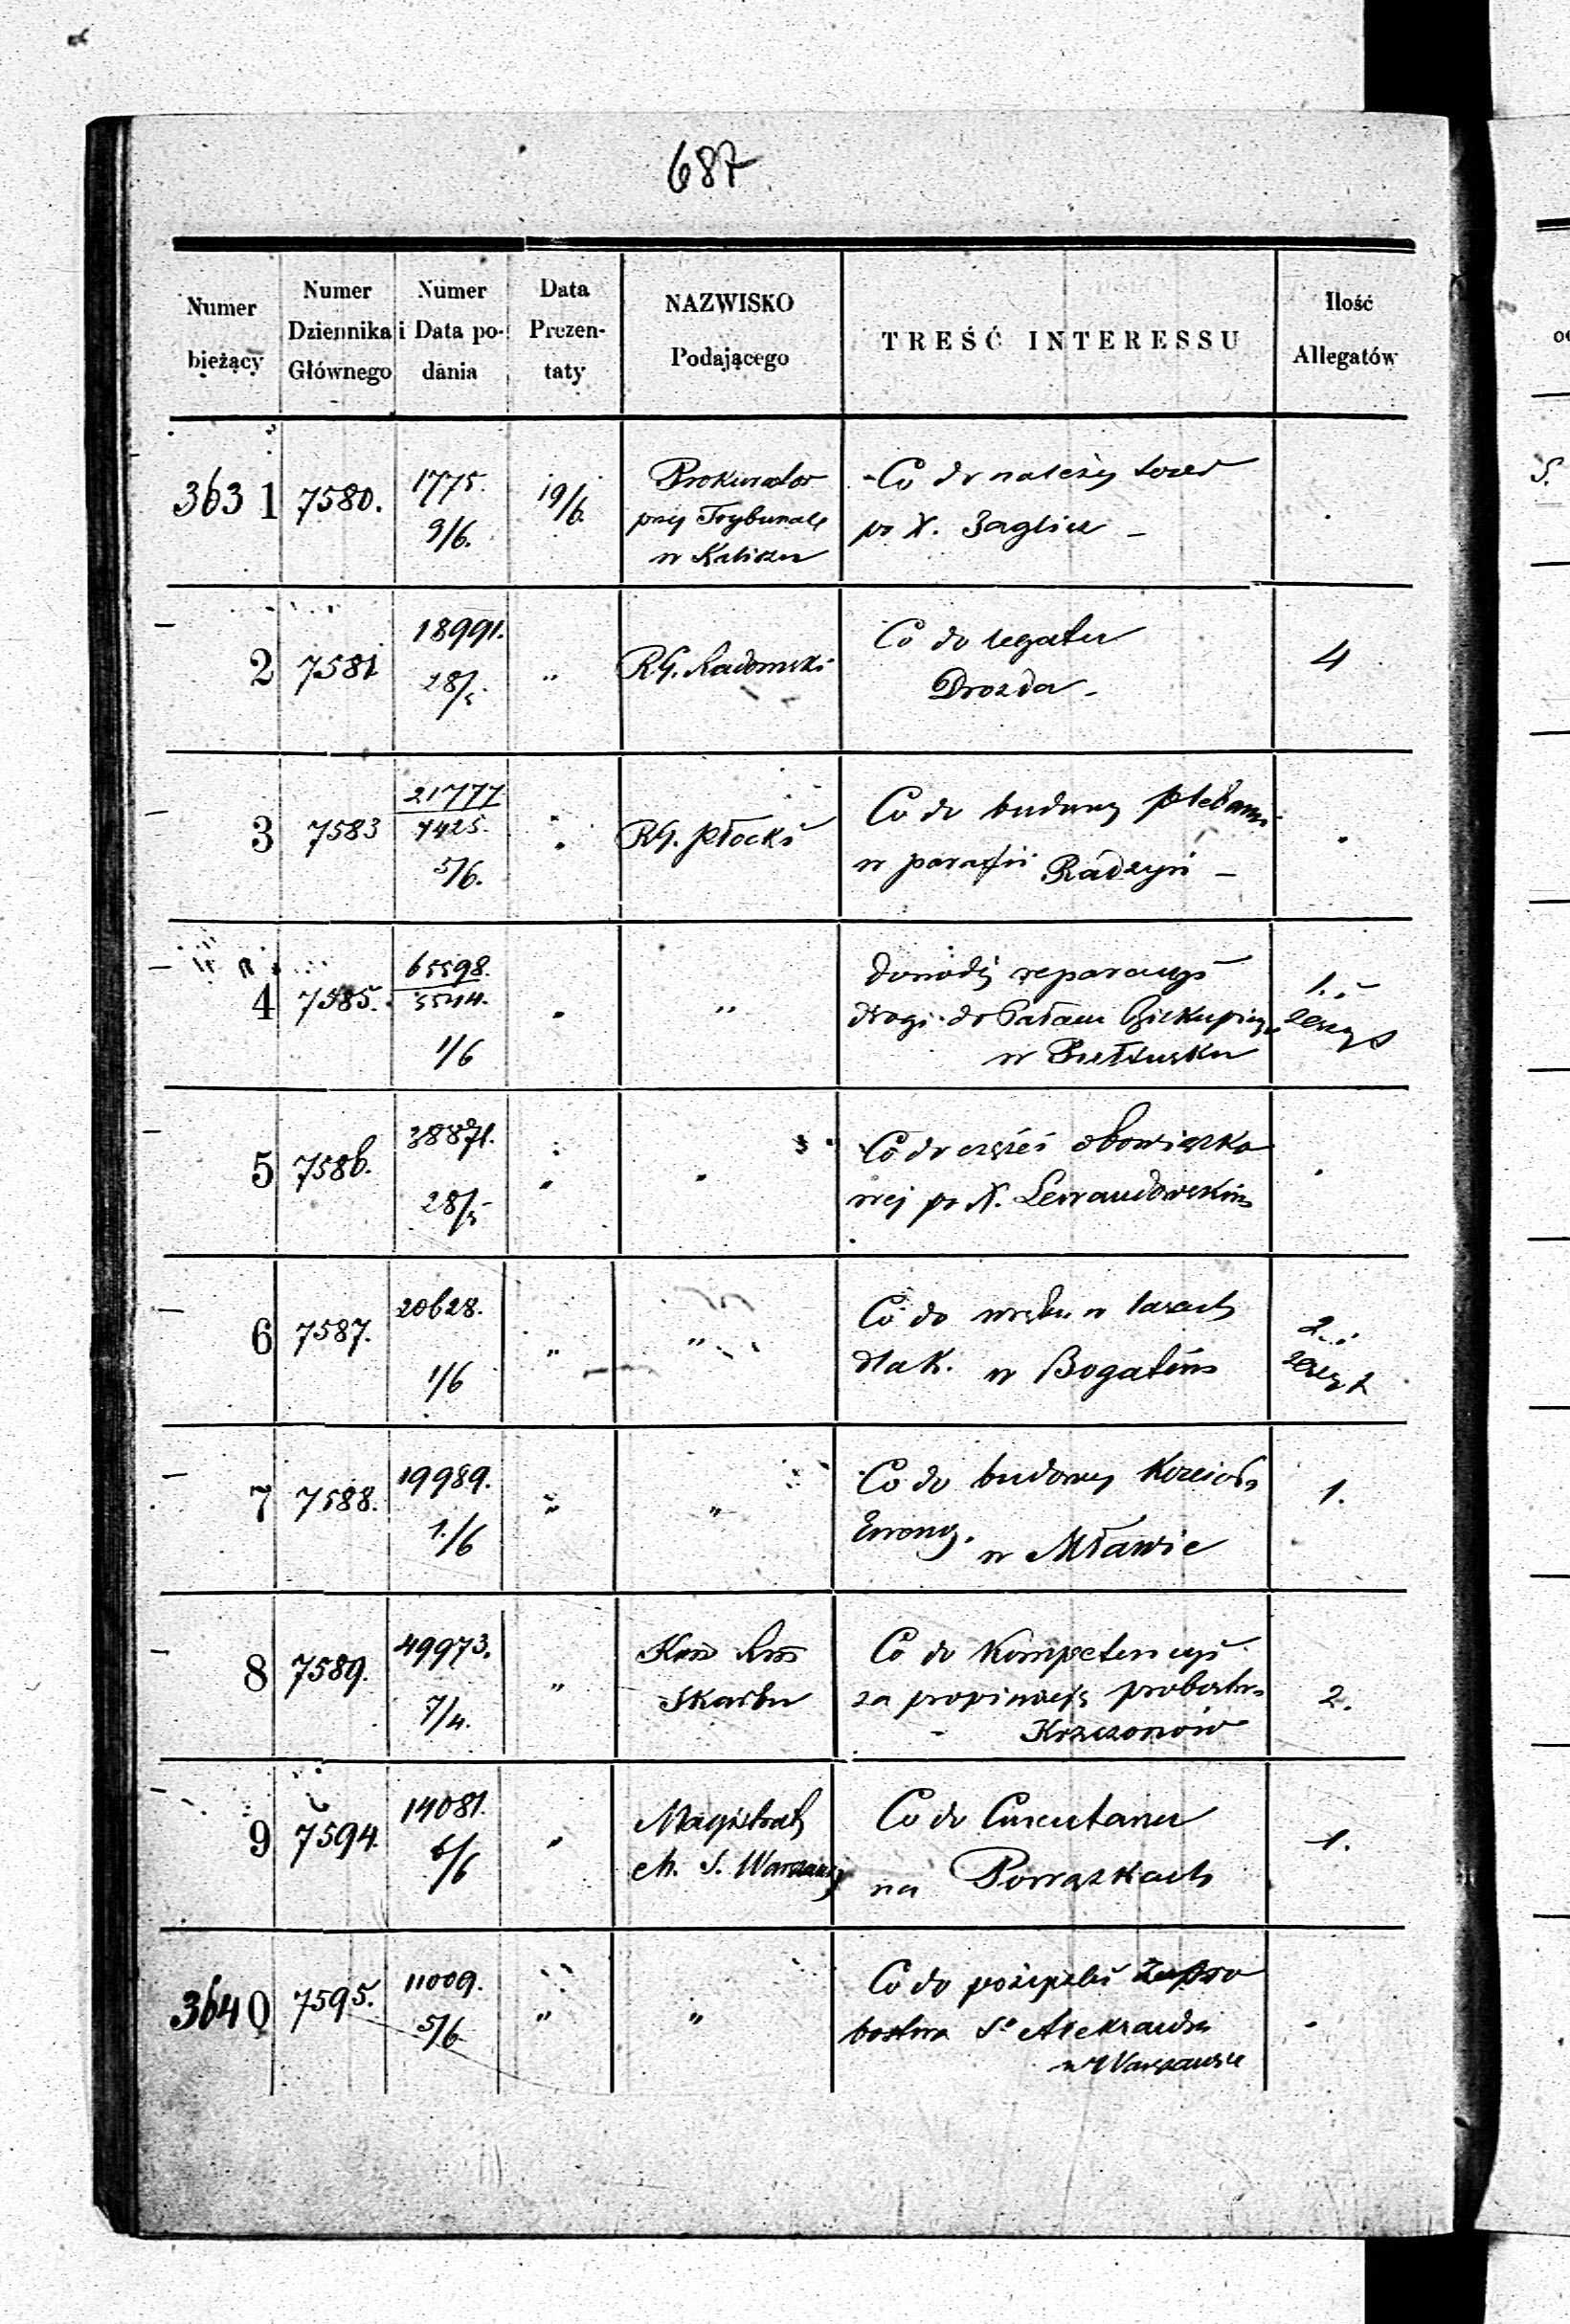 687
Numer bieżący
Numer Dziennika Głównego
Numer i Data podania
Data Prezentaty
NAZWISKO Podającego
TREŚĆ INTERESSU
Ilość Allegatów
3631 7580. 1775. 9/6. 19/6. Prokurator przy Trybunale w Kaliszu Co do należy
po X. Zaglicz -
2 7581 18991. 28/5. " RG. Radomski Co do legatu
Drozda - 4
3 7583 21777 7425. 5/6. " RG. Płocki Co do budowy plebanii
w parafii Radzyń - .
4 7585. 65598. 5544. 1/6 " " dowody reparacyi
drogi do Pałacu Biskupiego
w Pułtusku 1. zeszyt
5 7586. 38871. 28/5 " " Co do części obowiązko
wej po X. Lewandowskim .
6 7587. 20628. 1/6 " " Co do wrębu w lasach
dla K. w Bogatem 2. zeszyt
7 7588. 19989. 1./6 " " Co do budowy Kościoła
Ewang. w Mławie 1.
8 7589. 49973. 7/4. " Kom Rząd Skarbu Co do Kompetencyi
za propinacją probostwa
Krzczonów 2.
9 7594 14081. 6/6 " Magistrat M. S. Warszawy Co do Cmentarza
na Powązkach 1.
3640 7595. 11009. 5/6 " " Co do pożyczki
bostwa Sgo Alexandra
w Warszawie .